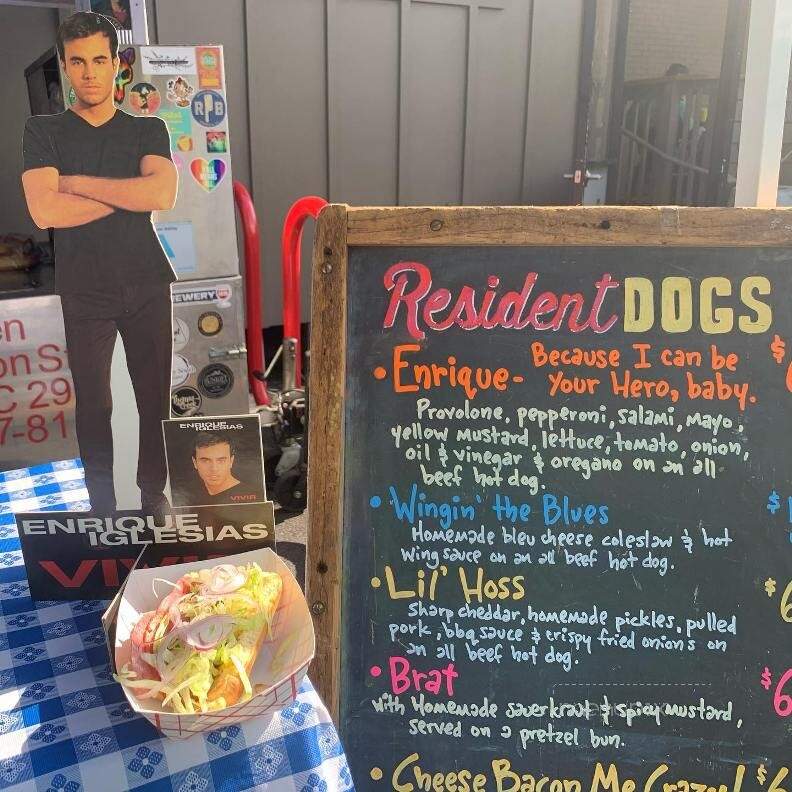 RPB
BREWERY
ENRIQUE
IGLESIAS
VIVIR
ENRIQUE
IGLESIAS
en
on S
C 29
7-81
Resident DOGS
• Enrique - Because I can be $
Your Hero, baby.
Provolone, pepperoni, salami, mayo,
yellow mustard, lettuce, tomato, onion,
oil & vinegar & oregano on an all
beef hot dog.
• Wingin' the Blues $
Homemade bleu cheese coleslaw & hot
wing sauce on an all beef hot dog.
• Lil' Hoss $6
Sharp cheddar, homemade pickles, pulled
pork, bbq sauce & crispy fried onions on
an all beef hot dog.
• Brat $6
with Homemade sauerkraut & spicy mustard,
served on a pretzel bun.
• Cheese Bacon Me Crazy! $6